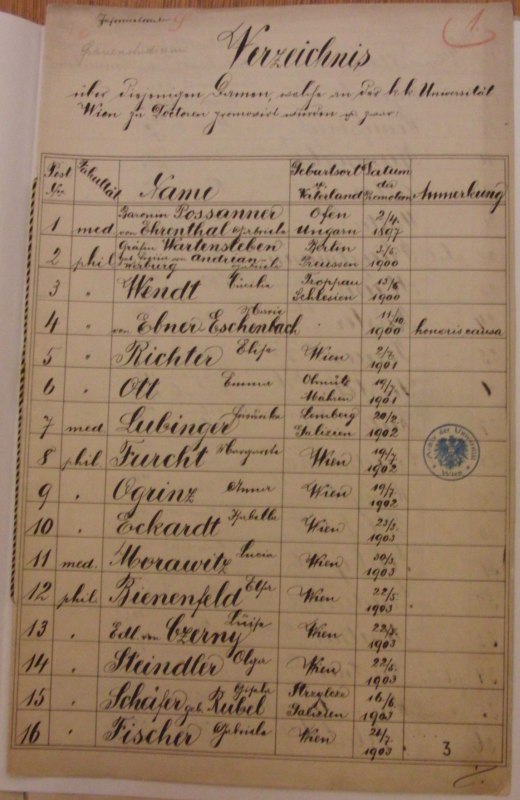 1.
Frauenstudium
Verzeichnis
über diejenigen Damen, welche an der k. k. Universität
Wien zu Doktoren promovirt wurden u. zwar:
Post Nr. Fakultät Name Geburtsort u. Vaterland Datum der Promotion Anmerkung
1 med. Baronin Possanner von Ehrenthal Gabriele Ofen Ungarn 2/4. 1897
2 phil. Gräfin Wartensleben geb. von Andrian-Werburg Gabriele Berlin Preussen 3/5. 1900
3 " Wendt Cäcilie Troppau Schlesien 13/6 1900
4 " von Ebner Eschenbach Marie 11/10. 1900 honoris causa
5 " Richter Elise Wien 2/7. 1901
6 " Ott Emma Olmütz Mähren 19/7. 1901
7 med Lubinger Lemberg Galizien 20/2. 1902
8 phil Furcht Margarete Wien 19/7. 1902
9 " Ogrinz Wien 19/7. 1902
10 " Eckardt Isabella Wien 23/3. 1903
11 med. Morawitz Lucia Wien 30/3. 1903
12 phil. Bienenfeld Elsa Wien 22/5. 1903
13 " Edl. von Czerny Luise Wien 22/5. 1903
14 " Steindler Olga Wien 22/5. 1903
15 " Schäfer geb. Rubel Gisela Galizien 16/6 1903
16 " Fischer Gabriele Wien 21/7. 1903
3
Archiv der Universität Wien